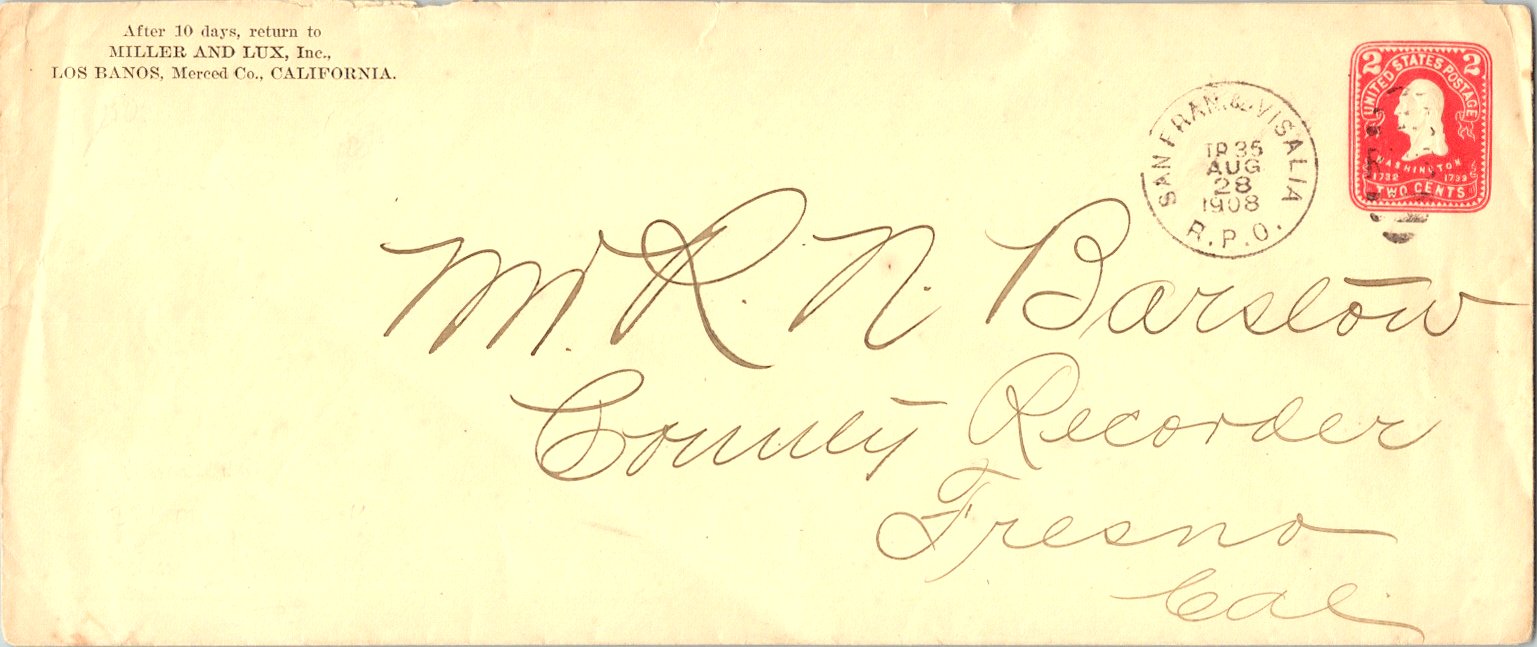 After 10 days, return to
MILLER AND LUX, Inc.,
LOS BANOS, Merced Co., CALIFORNIA.
SAN FRAN. & VISALIA
TR 35
AUG
28
1908
R.P.O.
2 2
UNITED STATES POSTAGE
WASHINGTON
1732 1799
TWO CENTS
Mr. R. N. Barstow
County Recorder
Fresno
Cal